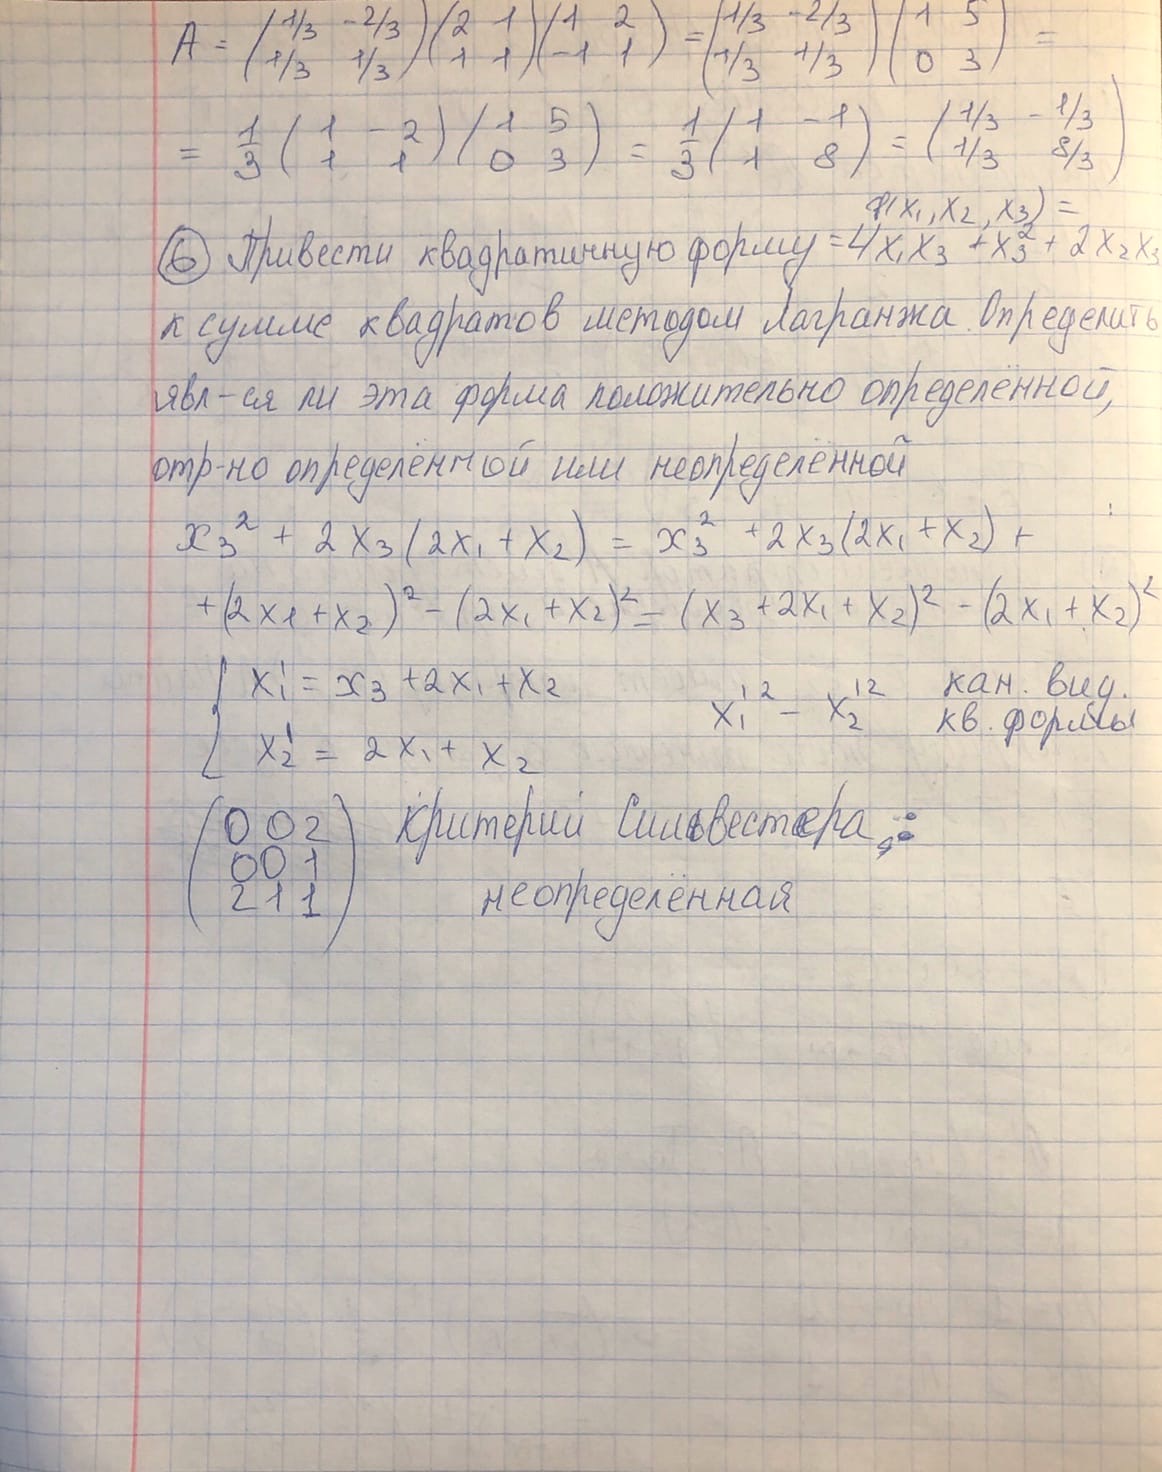 A = (1/3 -2/3 1/3 1/3)(2 1 1 1)(1 2 -1 1) = (1/3 -2/3 1/3 1/3)(1 5 0 3) =
= 1/3 (1 -2 1 1)(1 5 0 3) = 1/3 (1 -1 1 8) = (1/3 -1/3 1/3 8/3)
φ(x₁, x₂, x₃) =
⑥ Привести квадратичную форму = 4x₁x₃ + x₃² + 2x₂x₃
к сумме квадратов методом Лагранжа. Определить
явл-ся ли эта форма положительно определённой,
отр-но определённой или неопределённой
x₃² + 2x₃(2x₁ + x₂) = x₃² + 2x₃(2x₁ + x₂) +
+ (2x₁ + x₂)² - (2x₁ + x₂)² = (x₃ + 2x₁ + x₂)² - (2x₁ + x₂)²
{ x₁' = x₃ + 2x₁ + x₂
x₂' = 2x₁ + x₂
x₁'² - x₂'² кан. вид.
кв. формы
(0 0 2
0 0 1
2 1 1)
Критерий Сильвестера
неопределённая